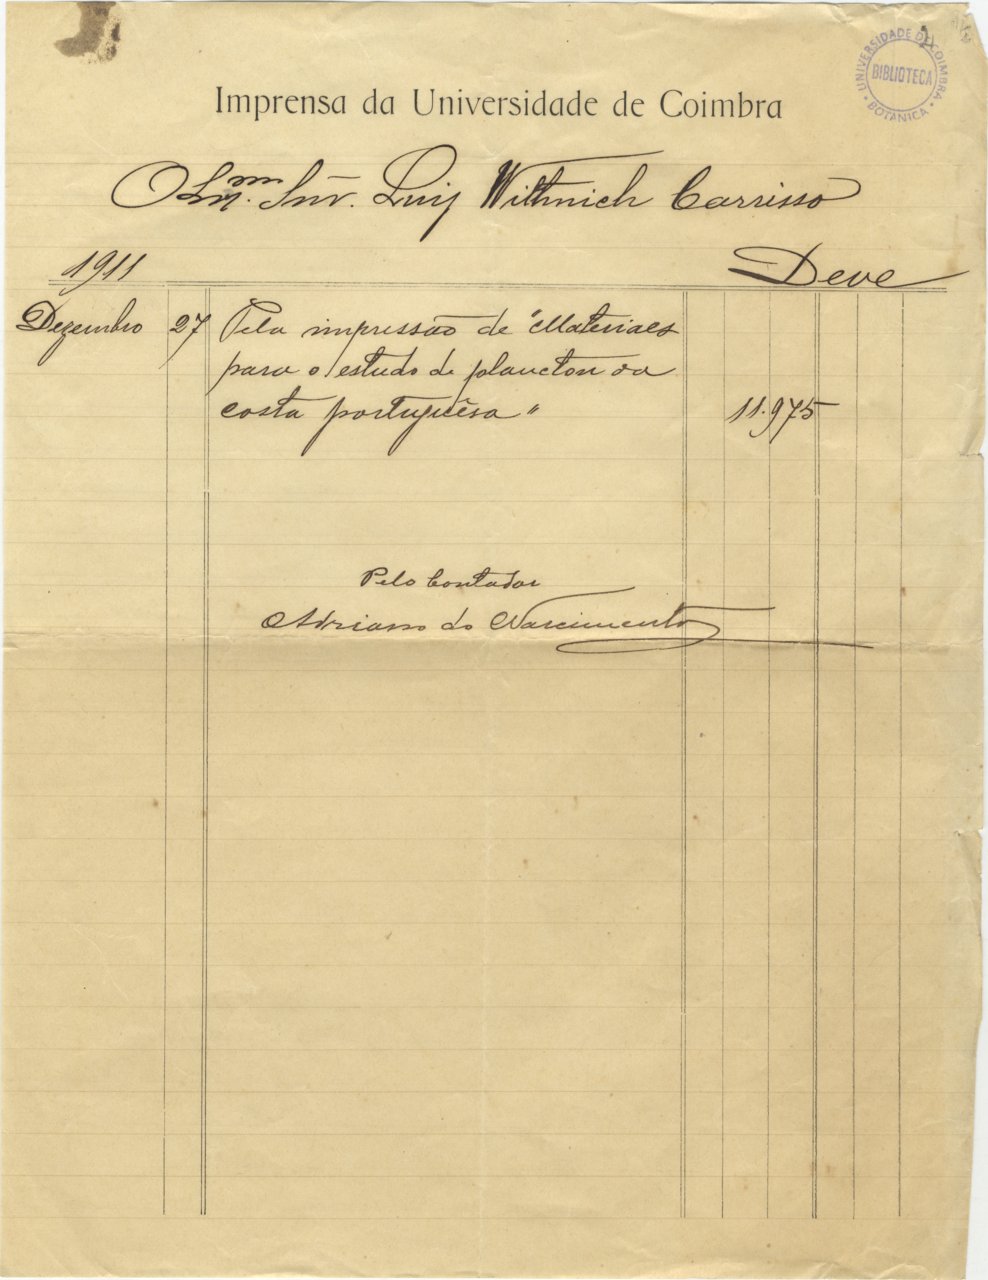 UNIVERSIDADE DE COIMBRA
BIBLIOTECA
BOTANICA
Imprensa da Universidade de Coimbra
Luiz Wittnich Carrisso
1911 Deve
Dezembro 27 Pela impressão de "Materiaes
para o estudo do plancton da
costa portuguêsa" 11.975
Pelo Contador
Adriano do Nascimento